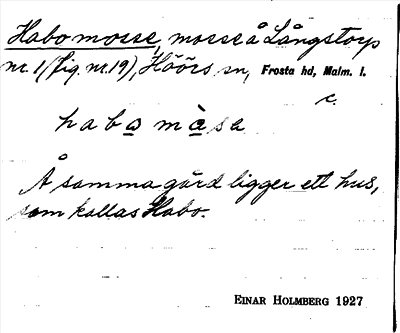 Habo mosse, mosse å Långstorp
nr. 1 (fig. nr. 19), Höörs sn, Frosta hd, Malm. l.
c.
habo màse
Å samma gård ligger ett hus,
som kallas Habo.
EINAR HOLMBERG 1927